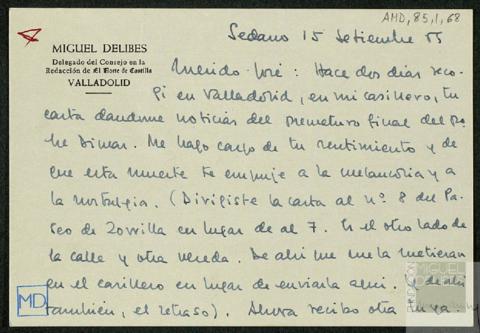 AMD, 85, 1, 68
Sedano 15 Setiembre 85
MIGUEL DELIBES
Delegado del Consejo en la
Redacción de El Norte de Castilla
VALLADOLID
Querido José: Hace dos días reco-
gí en Valladolid, en mi casillero, tu
carta dandome noticias del prematuro final del po-
bre Dimas. Me hago cargo de tu sentimiento y de
que esta muerte te empuje a la melancolía y a
la nostalgia. (Dirigiste la carta al nº 8 del Pa-
seo de Zorrilla en lugar de al 7. Es el otro lado de
la calle y otra vereda. De ahí me la metieran
en el casillero en lugar de enviarla aquí. Y de ahí
también, el retraso). Ahora recibo otra tuya.
MD
FUNDACIÓN
MIGUEL
DELIBES